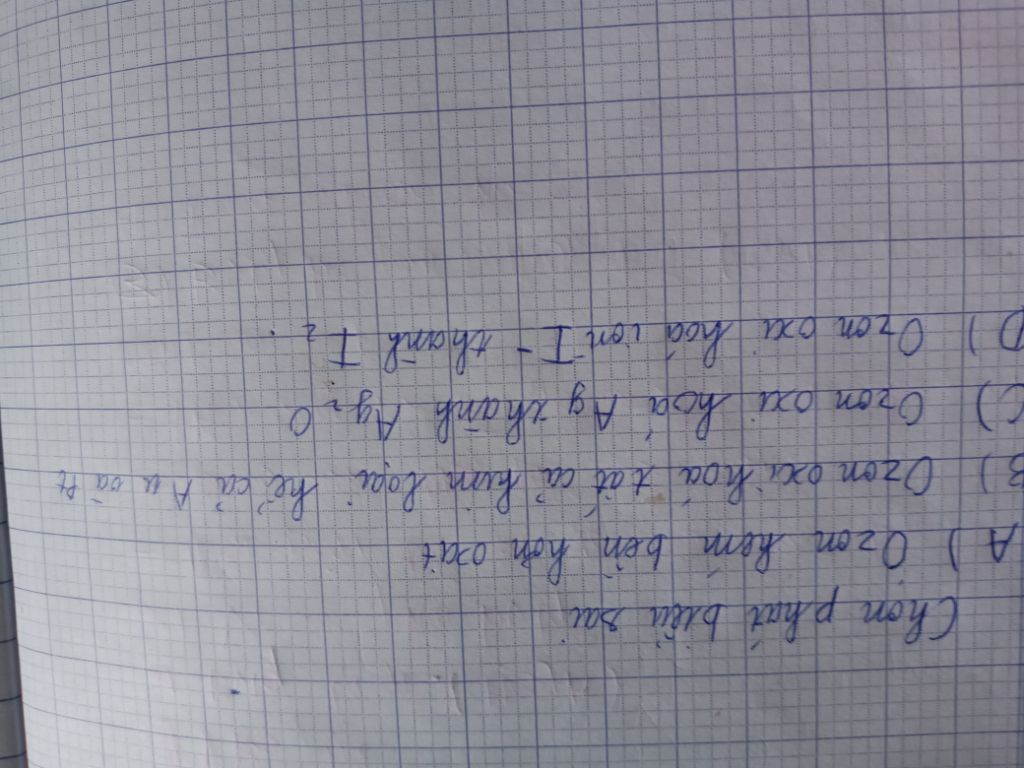 Chọn phát biểu sai
A) Ozon kém bền hơn oxi
B) Ozon oxi hoá tất cả kim loại kể cả Au và Pt
C) Ozon oxi hoá Ag thành Ag₂O
D) Ozon oxi hoá ion I- thành I₂.